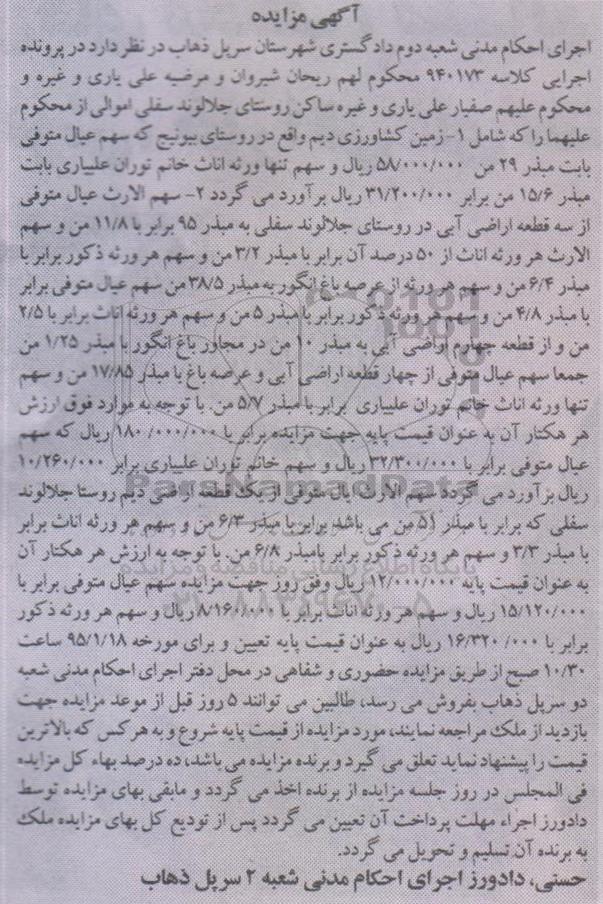 آگهی مزایده
اجرای احکام مدنی شعبه دوم دادگستری شهرستان سرپل ذهاب در نظر دارد در پرونده
اجرایی کلاسه ۹۴۰۱۷۳ محکوم لهم ریحان شیروان و مرضیه علی یاری و غیره و
محکوم علیهم صفیار علی یاری و غیره ساکن روستای جلالوند سفلی اموالی از محکوم
علیهما را که شامل ۱- زمین کشاورزی دیم واقع در روستای بیونیج که سهم عیال متوفی
بابت مبذر ۲۹ من ۵۸/۰۰۰/۰۰۰ ریال و سهم تنها ورثه اناث خانم توران علییاری بابت
مبذر ۱۵/۶ من برابر ۳۱/۲۰۰/۰۰۰ ریال برآورد می گردد ۲- سهم الارث عیال متوفی
از سه قطعه اراضی آبی در روستای جلالوند سفلی به مبذر ۹۵ برابر با ۱۱/۸ من و سهم
الارث هر ورثه اناث از ۵۰ درصد آن برابر با مبذر ۳/۲ من و سهم هر ورثه ذکور برابر با
مبذر ۶/۴ من و سهم هر ورثه از عرصه باغ انگور به مبذر ۳۸/۵ من سهم عیال متوفی برابر
با مبذر ۴/۸ من و سهم هر ورثه ذکور برابر با مبذر ۵ من و سهم هر ورثه اناث برابر با ۲/۵
من و از قطعه چهارم اراضی آبی به مبذر ۱۰ من در مجاور باغ انگور با مبذر ۱/۲۵ من
جمعا سهم عیال متوفی از چهار قطعه اراضی آبی و عرصه باغ با مبذر ۱۷/۸۵ من و سهم
تنها ورثه اناث خانم توران علییاری برابر با مبذر ۵/۷ من. با توجه به موارد فوق ارزش
هر هکتار آن به عنوان قیمت پایه جهت مزایده برابر با ۱۸۰/۰۰۰/۰۰۰ ریال که سهم
عیال متوفی برابر با ۳۲/۳۰۰/۰۰۰ ریال و سهم خانم توران علییاری برابر ۱۰/۲۶۰/۰۰۰
ریال برآورد می گردد سهم الارث ایال متوفی از یک قطعه اراضی دیم روستا جلالوند
سفلی که برابر با مبذر ۵۱ من می باشد برابر با مبذر ۶/۳ من و سهم هر ورثه اناث برابر
با مبذر ۳/۳ و سهم هر ورثه ذکور برابر بامبذر ۶/۸ من. با توجه به ارزش هر هکتار آن
به عنوان قیمت پایه ۱۲/۰۰۰/۰۰۰ ریال وفق روز جهت مزایده سهم عیال متوفی برابر با
۱۵/۱۲۰/۰۰۰ ریال و سهم هر ورثه اناث برابر با ۸/۱۶۰/۰۰۰ ریال و سهم هر ورثه ذکور
برابر با ۱۶/۳۲۰/۰۰۰ ریال به عنوان قیمت پایه تعیین و برای مورخه ۹۵/۱/۱۸ ساعت
۱۰/۳۰ صبح از طریق مزایده حضوری و شفاهی در محل دفتر اجرای احکام مدنی شعبه
دو سرپل ذهاب بفروش می رسد، طالبین می توانند ۵ روز قبل از موعد مزایده جهت
بازدید از ملک مراجعه نمایند، مورد مزایده از قیمت پایه شروع و به هر کس که بالاترین
قیمت را پیشنهاد نماید تعلق می گیرد و برنده مزایده می باشد، ده درصد بهاء کل مزایده
فی المجلس در روز جلسه مزایده از برنده اخذ می گردد و مابقی بهای مزایده توسط
دادورز اجراء مهلت پرداخت آن تعیین می گردد پس از تودیع کل بهای مزایده ملک
به برنده آن تسلیم و تحویل می گردد.
حسنی، دادورز اجرای احکام مدنی شعبه ۲ سرپل ذهاب
ParsNamadData
پایگاه اطلاع رسانی مناقصه و مزایده